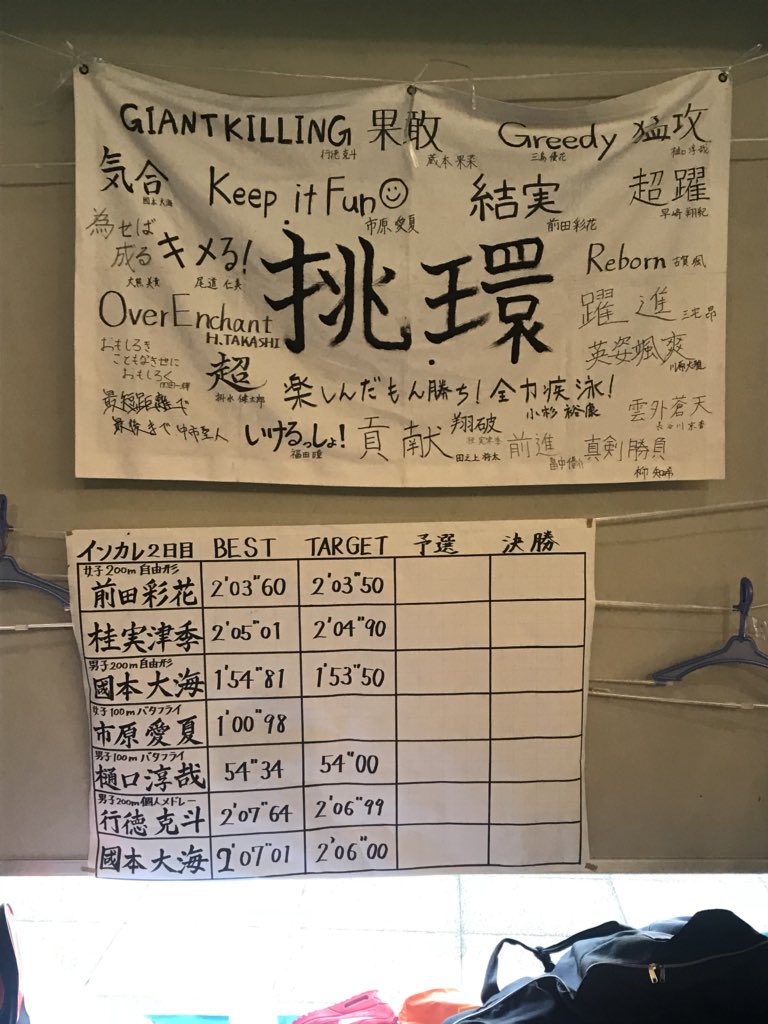 GIANTKILLING 果敢 Greedy 猛攻
行徳克斗 蔵本果菜 三島優花 樋口淳哉
気合 Keep it Fun☺ 結実 超躍
國本大海 市原愛夏 前田彩花 早崎翔紀
為せば
成る キメる! 挑環 Reborn 古賀颯
大熊美貴 尾道仁美
OverEnchant 躍進 三宅昂
H.TAKASHI
おもしろき
こともなきせに
おもしろく
超 英姿颯爽
掛水健太郎
楽しんだもん勝ち! 全力疾泳! 雲外蒼天
小杉裕康 長谷川京香
最短距離で
最強まで 中市聖人
いけるっしょ! 貢献 翔破 前進 真剣勝負
福田瞳 田之上将太 桂実津季 柳知希
インカレ2日目 BEST TARGET 予選 決勝
女子200m自由形
前田彩花 2'03"60 2'03"50
桂実津季 2'05"01 2'04"90
男子200m自由形
國本大海 1'54"81 1'53"50
女子100mバタフライ
市原愛夏 1'00"98
男子100mバタフライ
樋口淳哉 54"34 54"00
男子200m個人メドレー
行徳克斗 2'07"64 2'06"99
國本大海 2'07"01 2'06"00